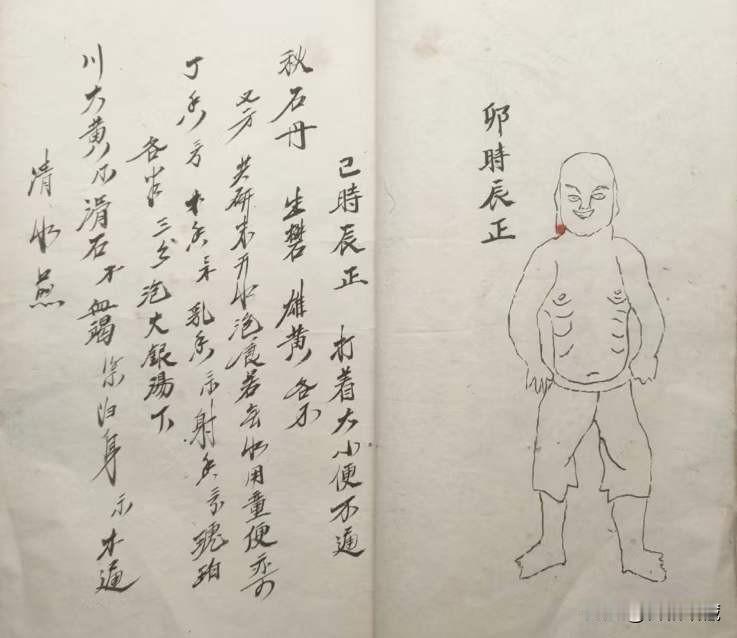 卯時辰正
已時辰正 打着大小便不通
秋石丹 生礬 雄黄 各
又方 共研末开水泡食若無水用童便亦可
丁香 木香 乳香 射香 琥珀
各 三分泡大銀湯下
川大黄 滑石 血竭 歸身 木通
清水煎